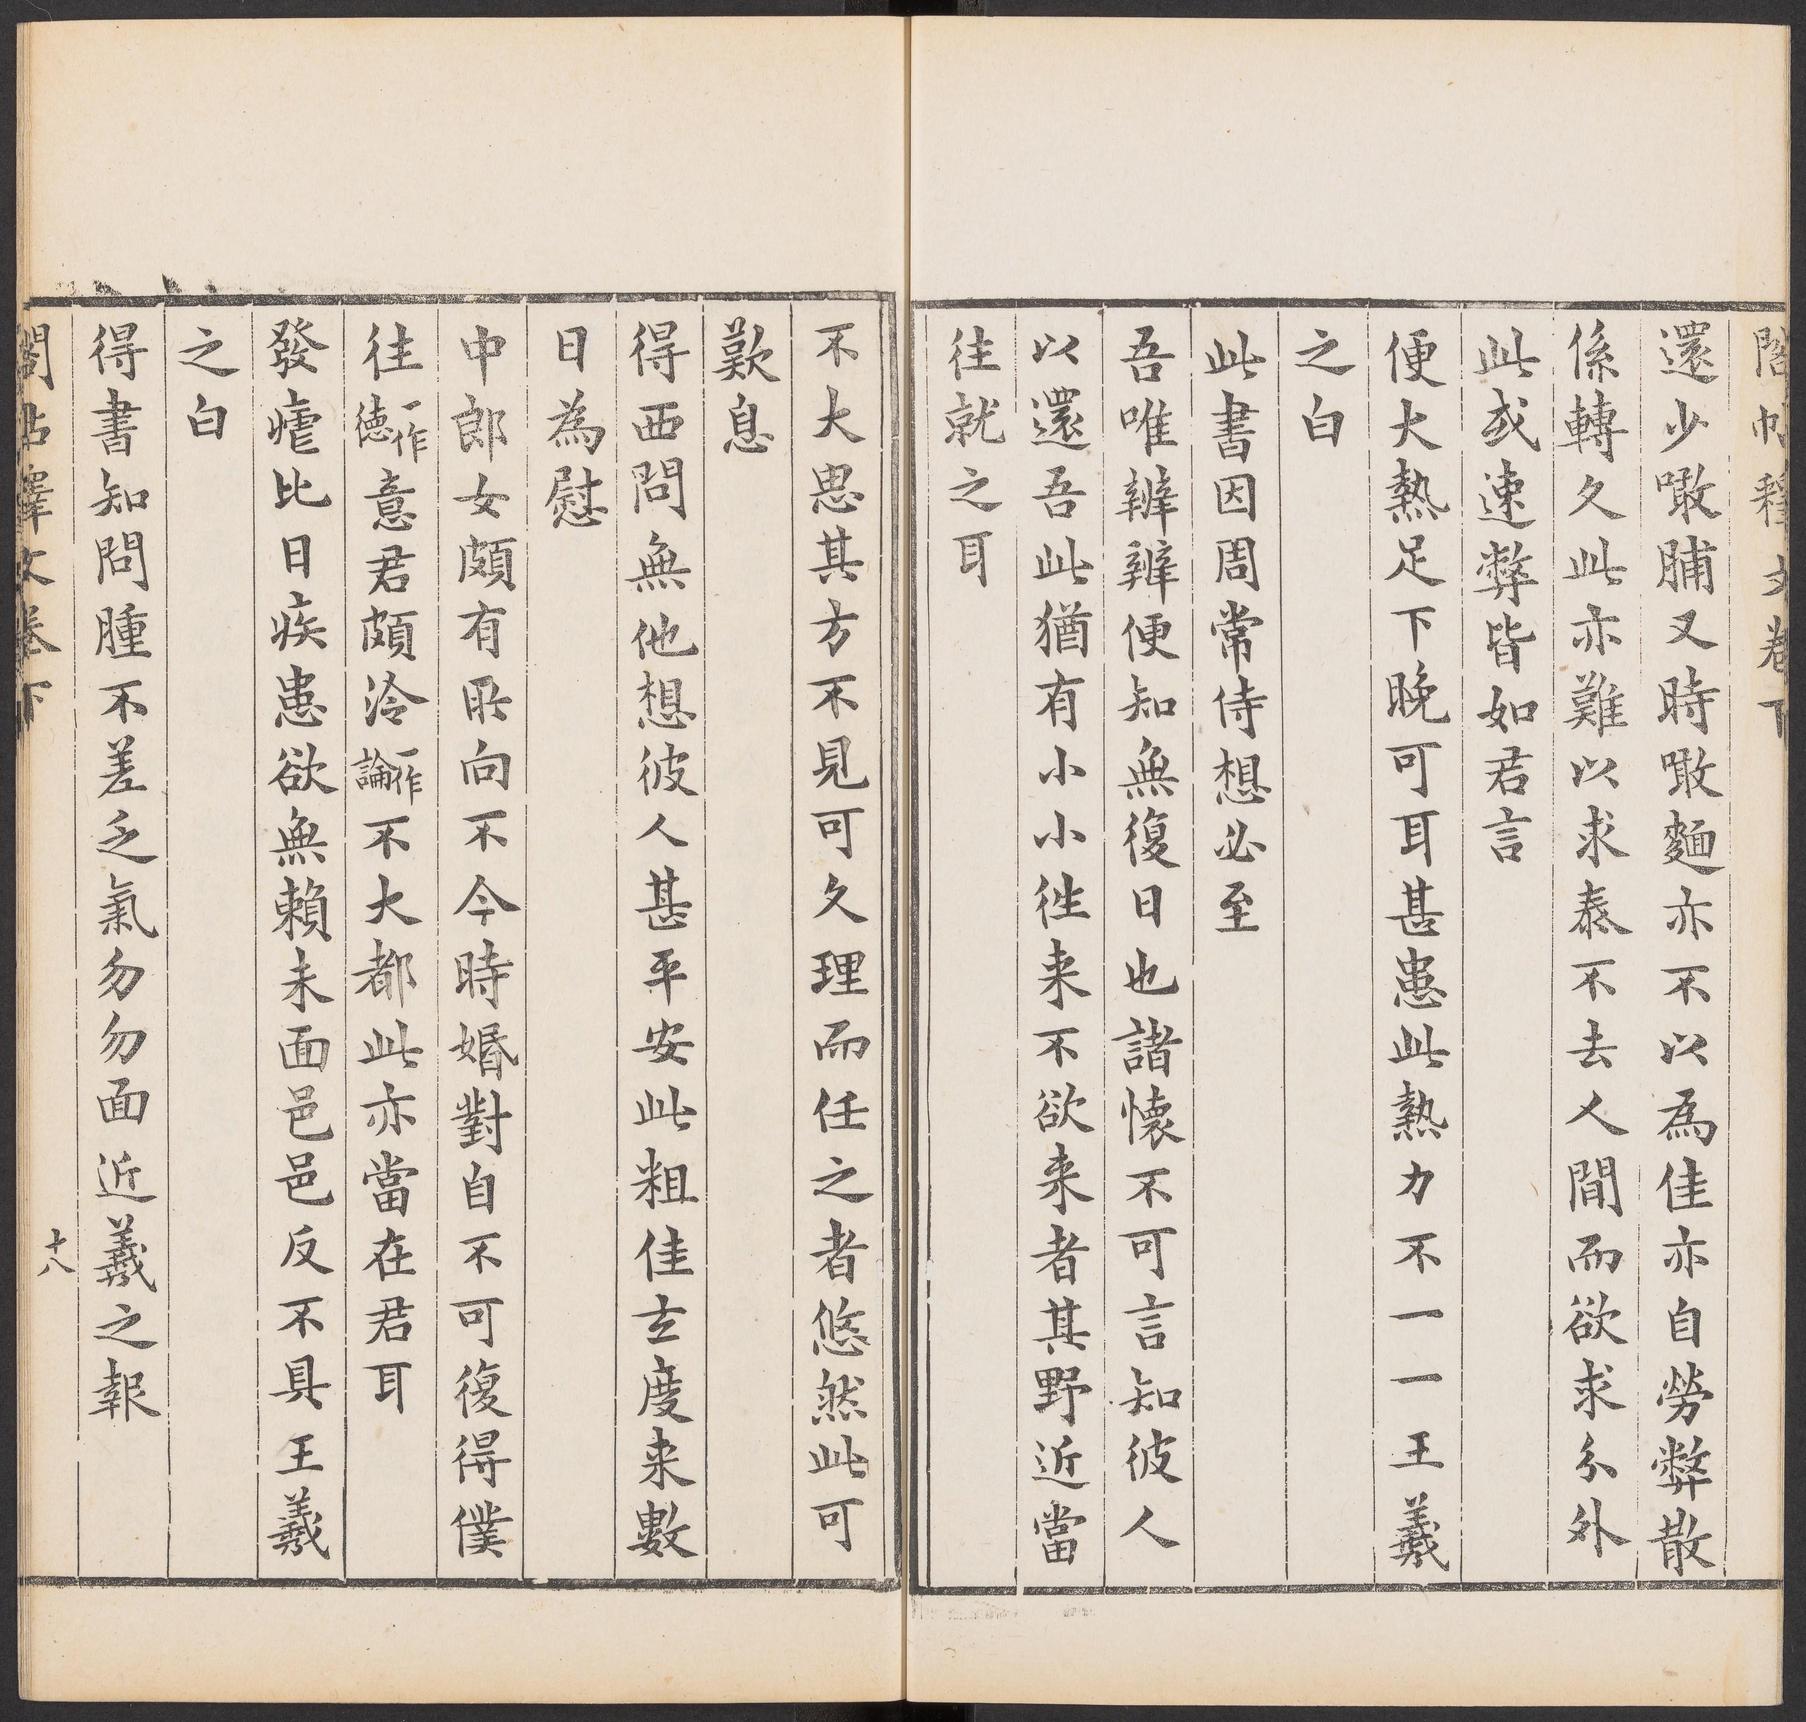 閣帖釋文卷下
還少噉脯又時噉麵亦不以為佳亦自勞弊散
係轉久此亦難以求泰不去人間而欲求分外
此或速弊皆如君言
便大熱足下晚可耳甚患此熱力不一一王羲
之白
此書因周常侍想必至
吾唯辨辨便知無復日也諸懷不可言知彼人
以還吾此猶有小小徃来不欲来者其野近當
往就之耳
不大思其方不見可久理而任之者悠然此可
歎息
得西問無他想彼人甚平安此粗佳玄度来數
日為慰
中郎女頗有所向不今時婚對自不可復得僕
往一作德意君頗泠一作論不大都此亦當在君耳
發瘧比日疾患欲無賴未面邑邑反不具王羲
之白
得書知問腫不差乏氣勿勿面近羲之報
閣帖釋文卷下
十八